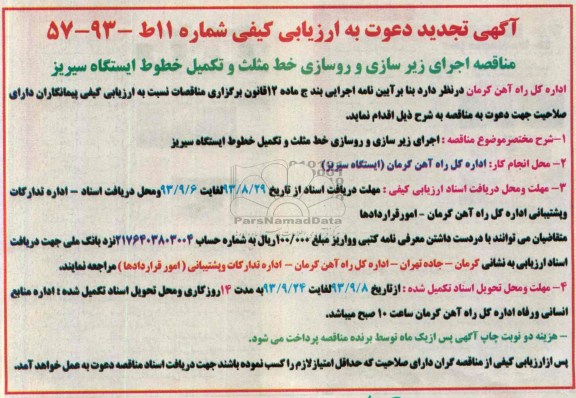 آگهی تجدید دعوت به ارزیابی کیفی شماره ۱۱ط -۹۳-۵۷
مناقصه اجرای زیر سازی و روسازی خط مثلث و تکمیل خطوط ایستگاه سیریز
اداره کل راه آهن کرمان درنظر دارد بنا برآیین نامه اجرایی بند ج ماده ۱۲قانون برگزاری مناقصات نسبت به ارزیابی کیفی پیمانکاران دارای
صلاحیت جهت دعوت به مناقصه به شرح ذیل اقدام نماید.
۱-شرح مختصرموضوع مناقصه : اجرای زیر سازی و روسازی خط مثلث و تکمیل خطوط ایستگاه سیریز
۲- محل انجام کار: اداره کل راه آهن کرمان (ایستگاه سیریز)
۳- مهلت ومحل دریافت اسناد ارزیابی کیفی : مهلت دریافت اسناد از تاریخ ۹۳/۸/۲۹لغایت ۹۳/۹/۶ومحل دریافت اسناد - اداره تدارکات
وپشتیبانی اداره کل راه آهن کرمان - امورقراردادها
متقاضیان می توانند با دردست داشتن معرفی نامه کتبی وواریز مبلغ ۱۰۰/۰۰۰ریال به شماره حساب ۲۱۷۶۴۰۳۸۰۳۰۰۴نزد بانک ملی جهت دریافت
اسناد ارزیابی به نشانی کرمان - جاده تهران - اداره کل راه آهن کرمان - اداره تدارکات وپشتیبانی ( امور قراردادها ) مراجعه نمایند.
۴- مهلت ومحل تحویل اسناد تکمیل شده : ازتاریخ ۹۳/۹/۸لغایت ۹۳/۹/۲۴به مدت ۱۴روزکاری ومحل تحویل اسناد تکمیل شده : اداره منابع
انسانی ورفاه اداره کل راه آهن کرمان ساعت ۱۰ صبح میباشد.
- هزینه دو نوبت چاپ آگهی پس ازیک ماه توسط برنده مناقصه پرداخت می شود.
پس ازارزیابی کیفی از مناقصه گران دارای صلاحیت که حداقل امتیازلازم را کسب نموده باشند جهت دریافت اسناد مناقصه دعوت به عمل خواهد آمد.
ParsNamadData